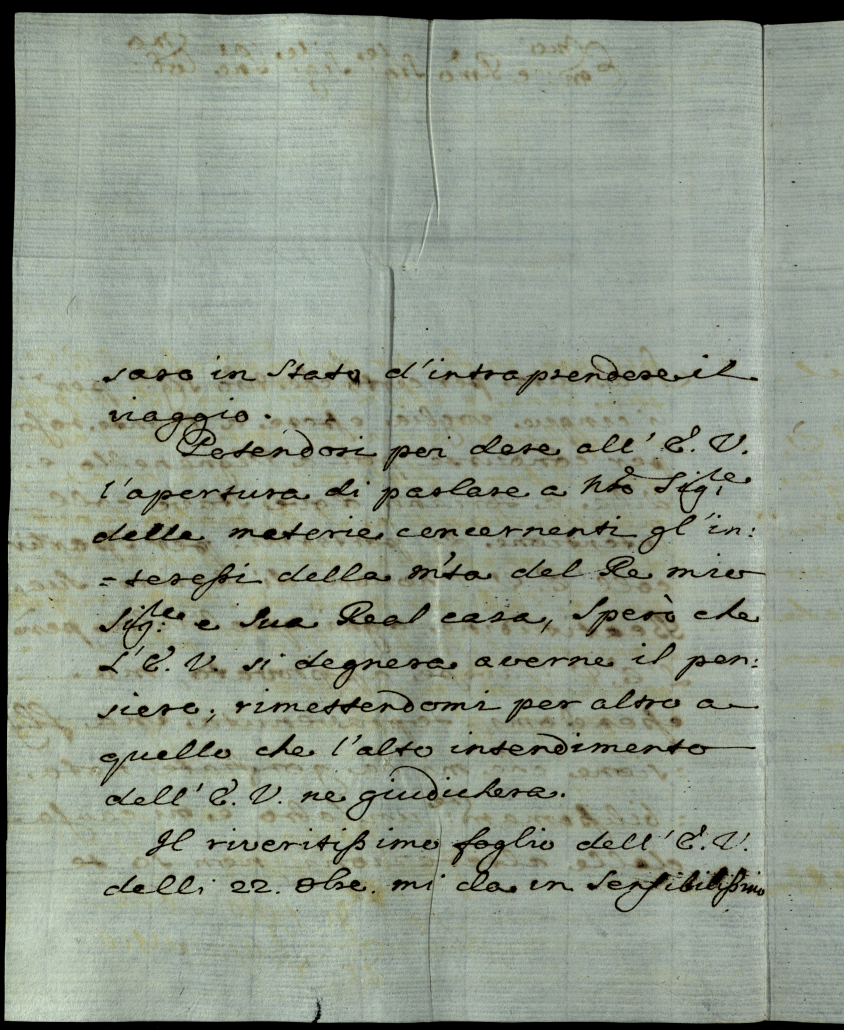 saro in Stato d'intraprendere il
viaggio.
Potendosi poi dare all' E. V.
l'apertura di parlare a Sig:re
delle materie concernenti gl'in:
=teressi della M:ta del Re mio
Sig:re e Sua Real casa, Sperò che
L'E. V. si degnera averne il pen:
siero, rimettendomi per altro a
quello che l'alto intendimento
dell' E. V. ne giudichera.
Il riveritissimo foglio dell' E. V.
delli 22. 8bre. mi da in Sensibilissimo